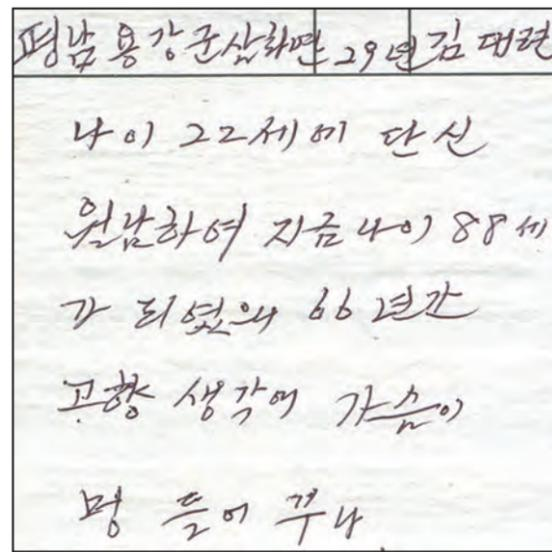 평남용강군삼화면 29년 김대련
나이 22세에 단신
월남하여 지금나이 88세
가 되였으니 66년간
고향 생각에 가슴이
멍 들어 꾸나